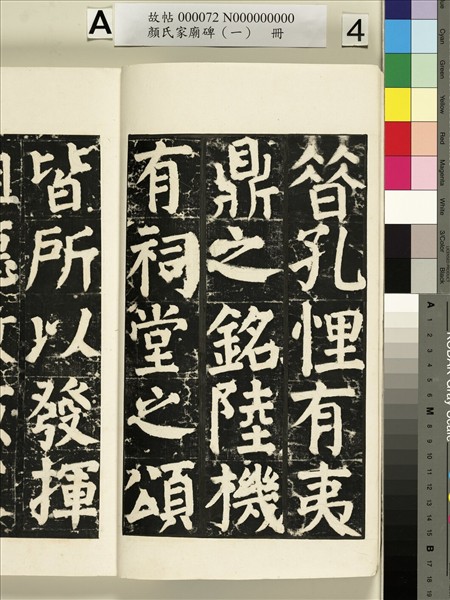 A
故帖 000072 N000000000
顏氏家廟碑（一） 冊
4
昔孔悝有夷
鼎之銘陸機
有祠堂之頌
皆所以發揮
Cyan
Green
Yellow
Red
Magenta
White
3/Color
Black
A
1
2
3
4
5
6
M
8
9
10
11
12
13
14
15
B
17
18
19